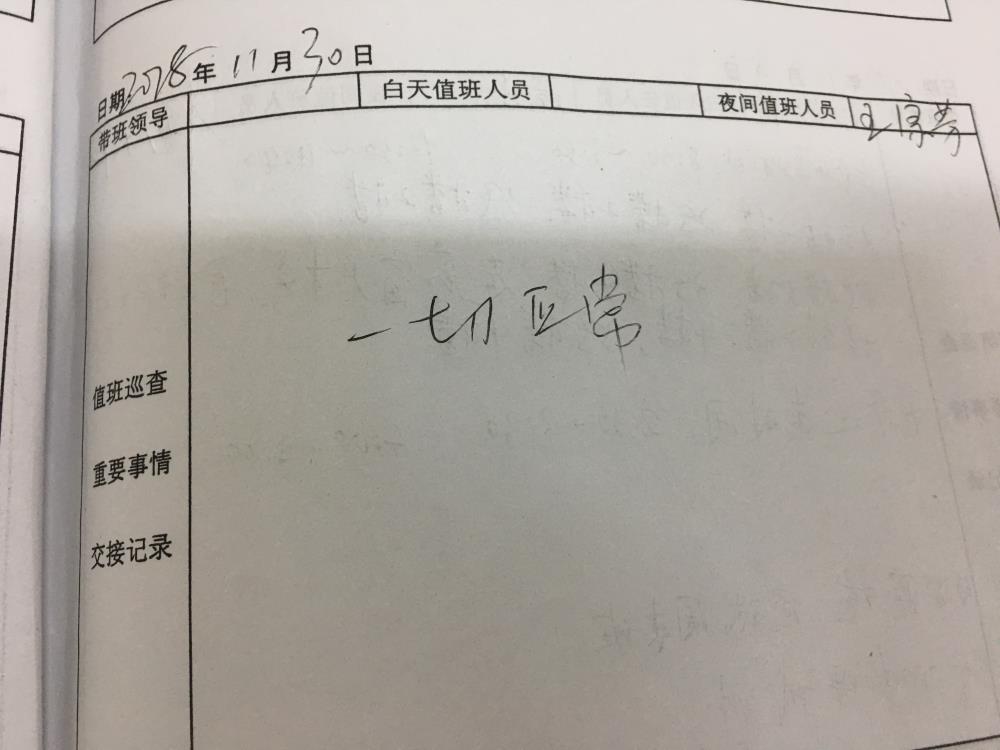 日期:2018年11月30日
带班领导 白天值班人员 夜间值班人员 王
一切正常
值班巡查
重要事情
交接记录